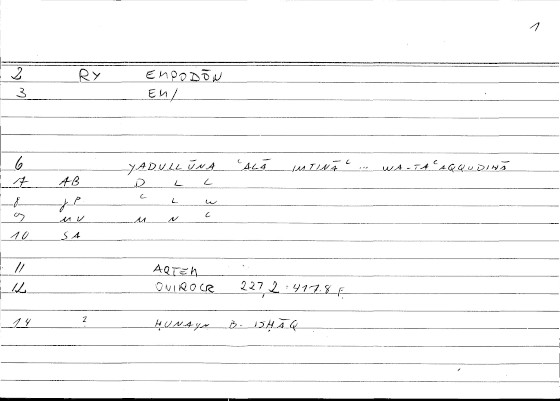 1
2 RY EMPODŌN
3 EM/
6 YADULLŪNA ʿALĀ IMTINĀʿ ... WA-TAʿAQQUDIHĀ
7 AB D L L
8 JP ʿ L W
9 MU M N ʿ
10 SA
11 ARTEM
12 QUIROCR 227,2 - 411.8 F.
14 ? ḤUNAYN B. ISḤĀQ